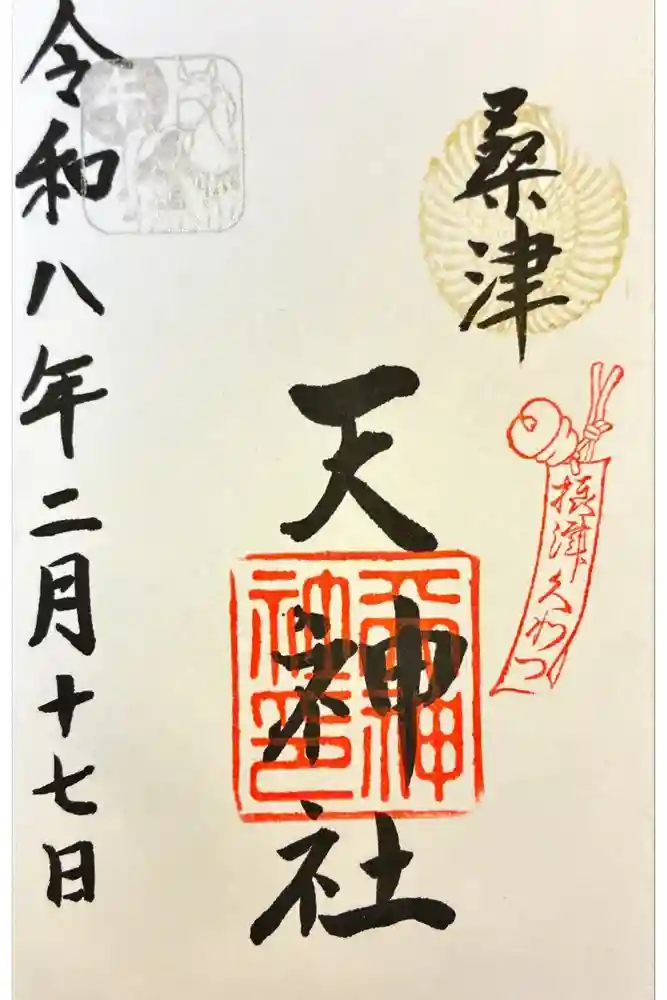 桑津
天神社
令和八年二月十七日
摂津くわつ
天神社印
午